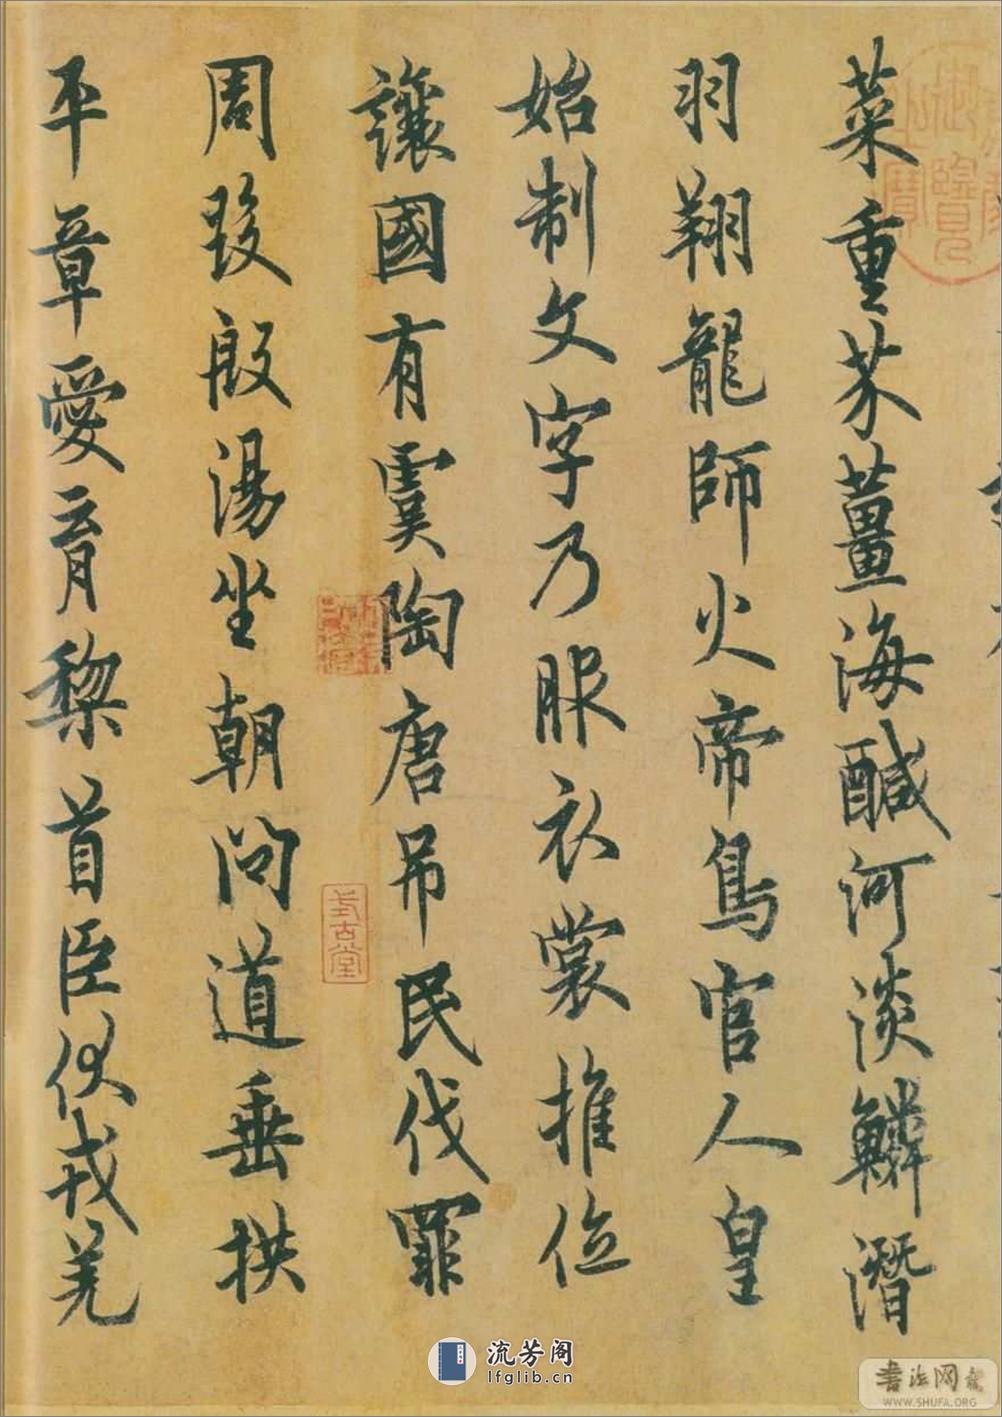 菜重芥薑海鹹河淡鱗潛
羽翔龍師火帝鳥官人皇
始制文字乃服衣裳推位
讓國有虞陶唐吊民伐罪
周發殷湯坐朝問道垂拱
平章愛育黎首臣伏戎羌
式古堂
流芳阁
lfglib.cn
书法网
WWW.SHUFA.ORG